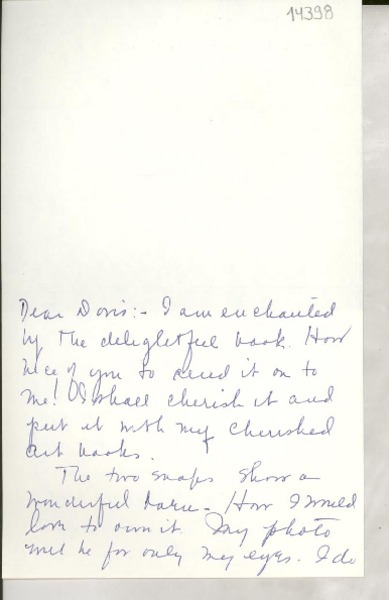 14398
Dear Doris:- I am enchanted
by the delightful book. How
nice of you to send it on to
me! I shall cherish it and
put it with my cherished
art books.
The two snaps show a
wonderful - How I would
love to own it. My photo
will be for only my eyes. I do